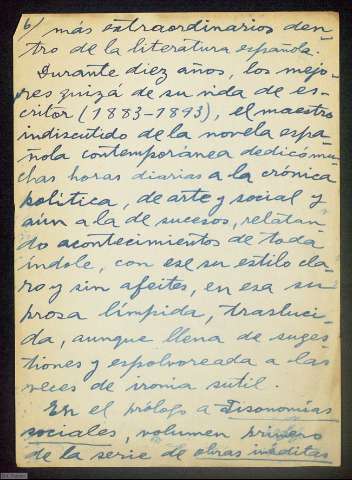 6/ más extraordinarios den-
tro de la literatura española.
Durante diez años, los mejo-
res quizá de su vida de es-
critor (1883-1893), el maestro
indiscutido de la novela espa-
ñola contemporánea dedicó mu-
chas horas diarias a la crónica
política, de arte y social y
aún a la de sucesos, relatan-
do acontecimientos de toda
índole, con ese su estilo cla-
ro y sin afeites, en esa su
prosa límpida, traslúci-
da, aunque llena de suges-
tiones y espolvoreada a las
veces de ironía sutil.
En el prólogo a Fisonomías
sociales, volumen primero
de la serie de obras inéditas